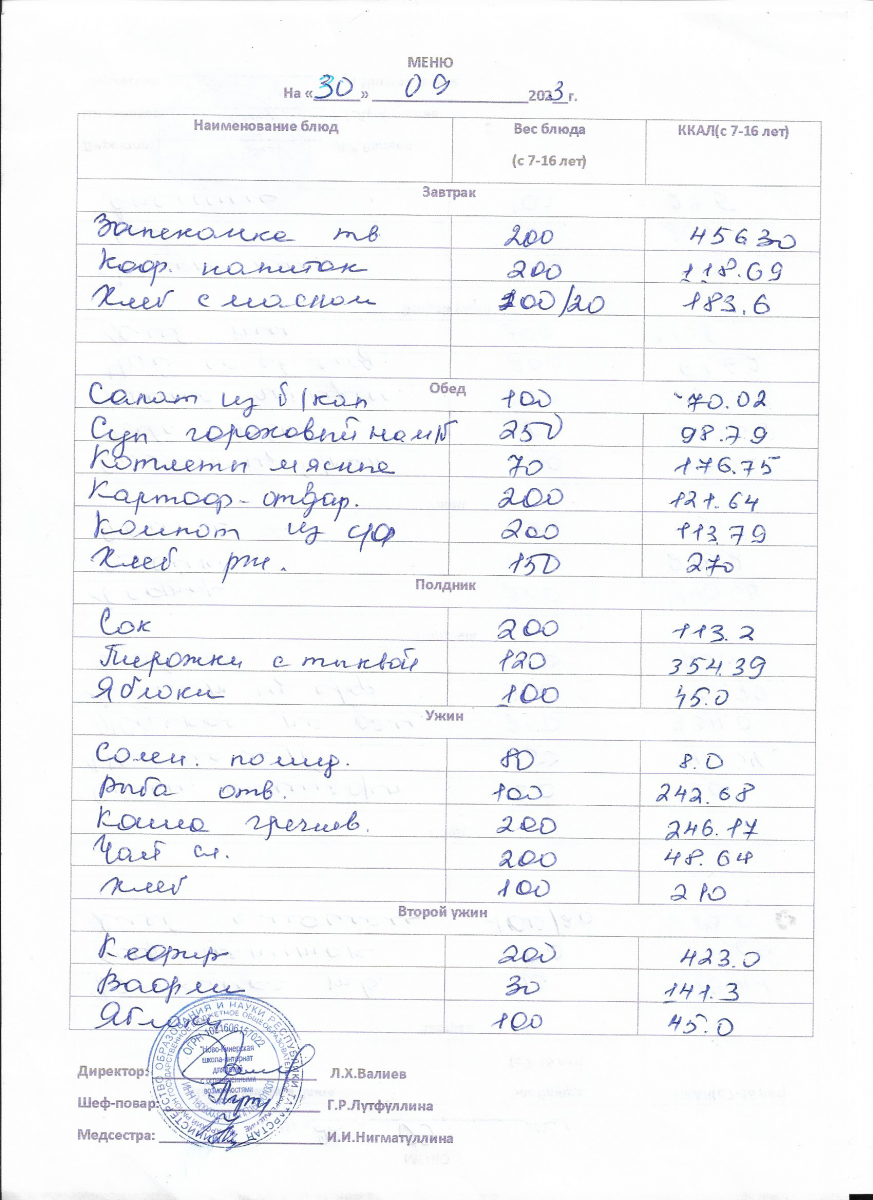 МЕНЮ
На «30» 09 2023 г.
Наименование блюд Вес блюда (с 7-16 лет) ККАЛ(с 7-16 лет)
Завтрак
Запеканка тв 200 456 30
Коф. напиток 200 118.69
Хлеб с маслом 100/20 183.6
Обед
Салат из б/кап 100 70.02
Суп гороховый на м/б 250 98.79
Котлеты мясные 70 176.75
Картоф- отвар. 200 121.64
Компот из с/ф 200 113.79
Хлеб рж. 150 270
Полдник
Сок 200 113.2
Пирожки с тыквой 120 354.39
Яблоки 100 45.0
Ужин
Солен. помид. 80 8.0
Рыба отв. 100 242.68
Каша гречнев. 200 246.17
Чай сл. 200 48.64
Хлеб 100 210
Второй ужин
Кефир 200 423.0
Вафли 30 141.3
Яблоки 100 45.0
Директор: Л.Х.Валиев
Шеф-повар: Г.Р.Лутфуллина
Медсестра: И.И.Нигматуллина
"Ново-Кинерская
школа-интернат
для детей
с ограниченными
возможностями